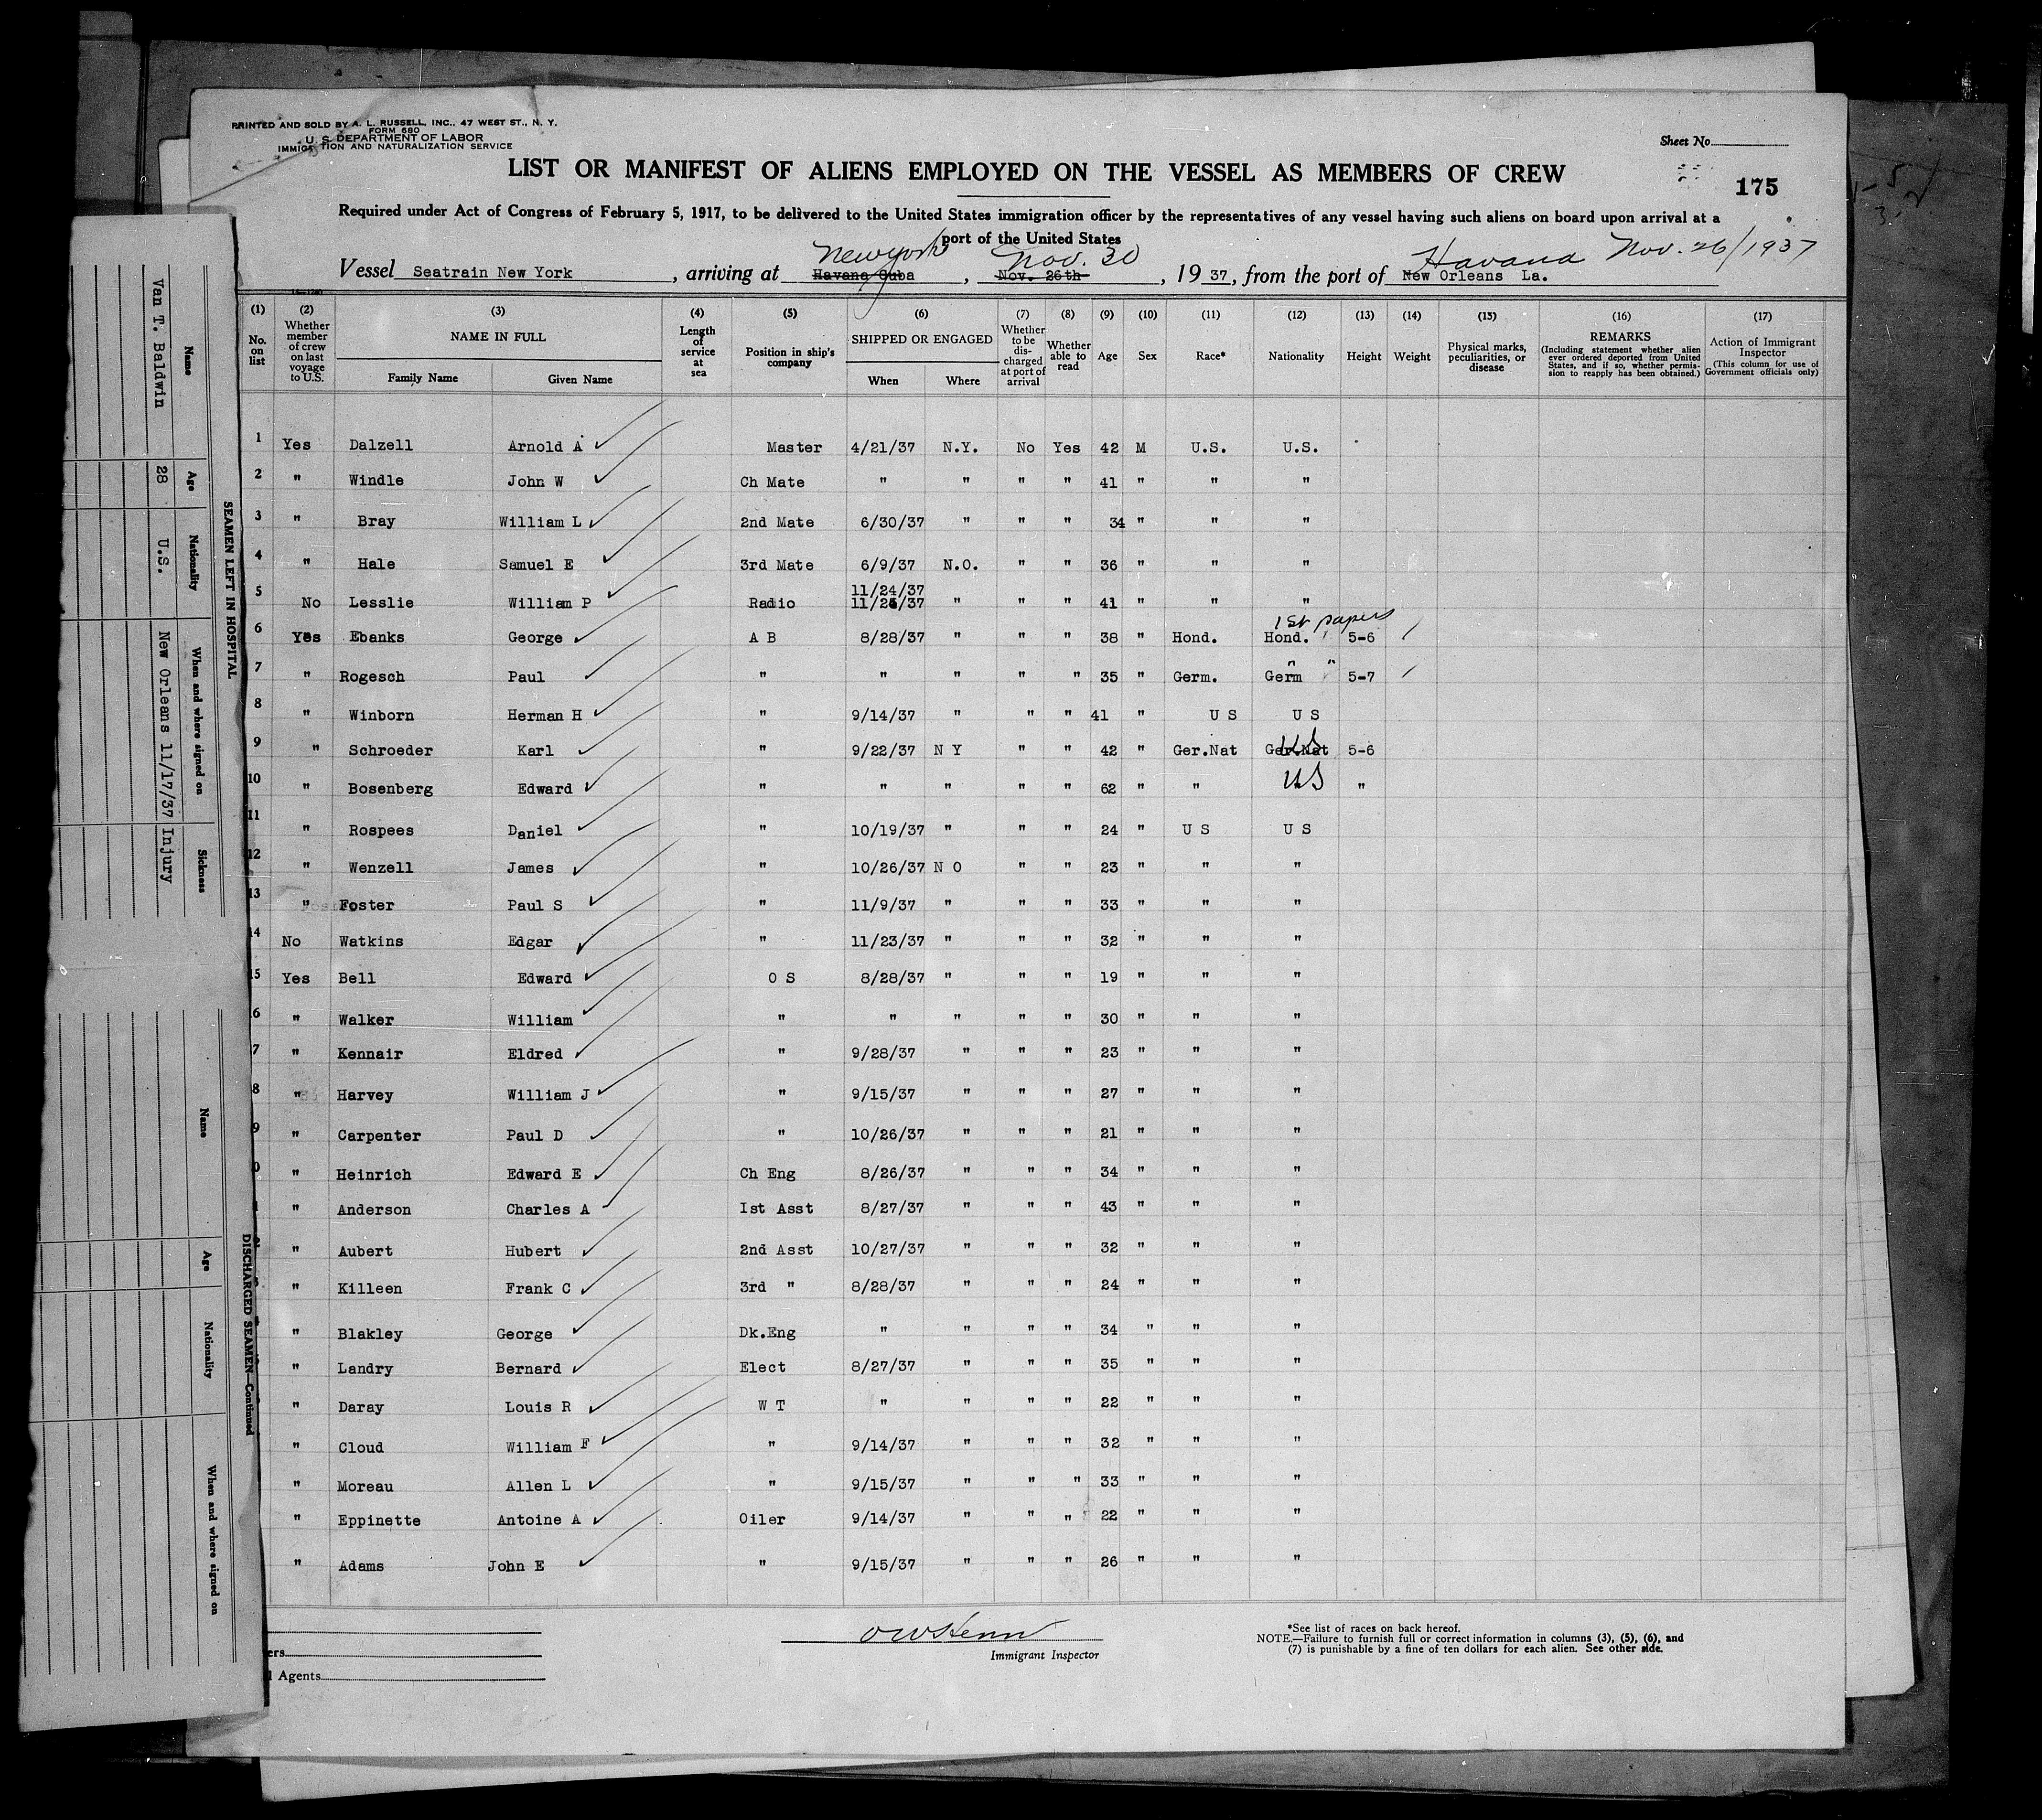 PRINTED AND SOLD BY A. L. RUSSELL, INC., 47 WEST ST., N. Y.
FORM 680
U. S. DEPARTMENT OF LABOR
IMMIG TION AND NATURALIZATION SERVICE
Sheet No.
LIST OR MANIFEST OF ALIENS EMPLOYED ON THE VESSEL AS MEMBERS OF CREW
175
Required under Act of Congress of February 5, 1917, to be delivered to the United States immigration officer by the representatives of any vessel having such aliens on board upon arrival at a
port of the United States
New york Nov. 30 Havana Nov. 26/1937
Vessel Seatrain New York, arriving at Havana Cuba, Nov. 26th, 19 37, from the port of New Orleans La.
(1) (2) (3) (4) (5) (6) (7) (8) (9) (10) (11) (12) (13) (14) (15) (16) (17)
No. on list Whether member of crew on last voyage to U.S. NAME IN FULL Family Name Given Name Length of service at sea Position in ship's company SHIPPED OR ENGAGED When Where Whether to be discharged at port of arrival Whether able to read Age Sex Race* Nationality Height Weight Physical marks, peculiarities, or disease REMARKS (Including statement whether alien ever ordered deported from United States, and if so, whether permission to reapply has been obtained.) Action of Immigrant Inspector (This column for use of Government officials only)
1 Yes Dalzell Arnold A Master 4/21/37 N.Y. No Yes 42 M U.S. U.S.
2 " Windle John W Ch Mate " " " " 41 " " "
3 " Bray William L 2nd Mate 6/30/37 " " " 34 " " "
4 " Hale Samuel E 3rd Mate 6/9/37 N.O. " " 36 " " "
11/24/37
5 No Lesslie William P Radio 11/25/37 " " " 41 " " "
1st papers
6 Yes Ebanks George A B 8/28/37 " " " 38 " Hond. Hond. 5-6
7 " Rogesch Paul " " " " " 35 " Germ. Germ " " 5-7
8 " Winborn Herman H " 9/14/37 " " " 41 " U S U S
9 " Schroeder Karl " 9/22/37 N Y " " 42 " Ger.Nat Ger.Nat US 5-6
10 " Bosenberg Edward " " " " " 62 " " US "
11 " Rospees Daniel " 10/19/37 " " " 24 " U S U S
12 " Wenzell James " 10/26/37 N O " " 23 " " "
13 " Foster Paul S " 11/9/37 " " " 33 " " "
14 No Watkins Edgar " 11/23/37 " " " 32 " " "
5 Yes Bell Edward O S 8/28/37 " " " 19 " " "
6 " Walker William " " " " " 30 " " "
7 " Kennair Eldred " 9/28/37 " " " 23 " " "
8 " Harvey William J " 9/15/37 " " " 27 " " "
9 " Carpenter Paul D " 10/26/37 " " " 21 " " "
0 " Heinrich Edward E Ch Eng 8/26/37 " " " 34 " " "
" Anderson Charles A Ist Asst 8/27/37 " " " 43 " " "
" Aubert Hubert 2nd Asst 10/27/37 " " " 32 " " "
" Killeen Frank C 3rd " 8/28/37 " " " 24 " " "
" Blakley George Dk.Eng " " " " 34 " " "
" Landry Bernard Elect 8/27/37 " " " 35 " " "
" Daray Louis R W T " " " " 22 " " "
" Cloud William F " 9/14/37 " " " 32 " " "
" Moreau Allen L " 9/15/37 " " " 33 " " "
" Eppinette Antoine A Oiler 9/14/37 " " " 22 " " "
" Adams John E " 9/15/37 " " " 26 " " "
ers
l Agents
Immigrant Inspector
*See list of races on back hereof.
NOTE.—Failure to furnish full or correct information in columns (3), (5), (6), and
(7) is punishable by a fine of ten dollars for each alien. See other side.
SEAMEN LEFT IN HOSPITAL
Name Age Nationality When and where signed on Sickness
Van T. Baldwin 28 U.S. New Orleans 11/17/37 Injury
DISCHARGED SEAMEN—Continued
Name Age Nationality When and where signed on